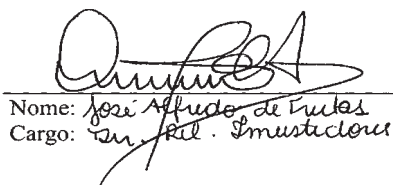 Nome: José Alfredo de Freitas
Cargo: Dir. Rel. Investidores